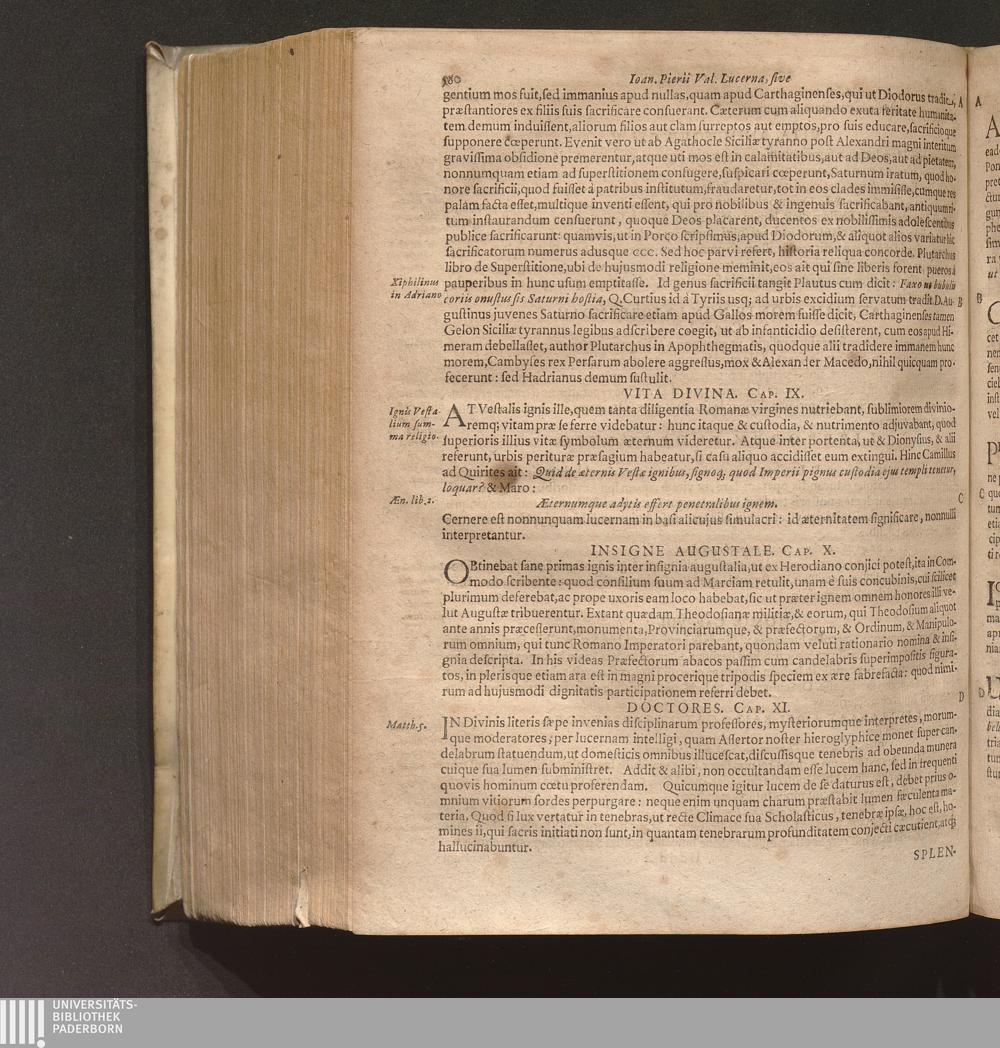 580 Ioan. Pierii Val. Lucerna, sive
gentium mos fuit, sed immanius apud nullas, quam apud Carthaginenses, qui ut Diodorus A
præstantiores ex filiis suis sacrificare consuerant. Cæterum cum aliquando exuta feritate humanita-
tem demum induissent, aliorum filios aut clam surreptos aut emptos, pro suis educare, sacrificioque
supponere cœperunt. Evenit vero ut ab Agathocle Siciliæ tyranno post Alexandri magni interitum
gravissima obsidione premerentur, atque uti mos est in calamitatibus, aut ad Deos, aut ad pietatem,
nonnumquam etiam ad superstitionem confugere, suspicari cœperunt, Saturnum iratum, quod ho-
nore sacrificii, quod fuisset à patribus institutum, fraudaretur, tot in eos clades immisisse, cumque res
palam facta esset, multique inventi essent, qui pro nobilibus & ingenuis sacrificabant, antiquum ri-
tum instaurandum censuerunt, quoque Deos placarent, ducentos ex nobilissimis adolescentibus
publice sacrificarunt: quamvis, ut in Porco scripsimus, apud Diodorum, & aliquot alios variatur hic
sacrificatorum numerus adusque ccc. Sed hoc parvi refert, historia reliqua concorde. Plutarchus
libro de Superstitione, ubi de hujusmodi religione meminit, eos ait qui sine liberis forent pueros à
Xiphilinus pauperibus in hunc usum emptitasse. Id genus sacrificii tangit Plautus cum dicit: Faxo ut bubulis
in Adriano coriis onustus sis Saturni hostia, Q. Curtius id à Tyriis usq; ad urbis excidium servatum tradit. D. Au- B
gustinus juvenes Saturno sacrificare etiam apud Gallos morem fuisse dicit, Carthaginenses tamen
Gelon Siciliæ tyrannus legibus adscribere coegit, ut ab infanticidio desisterent, cum eos apud Hi-
meram debellasset, author Plutarchus in Apophthegmatis, quodque alii tradidere immanem hunc
morem, Cambyses rex Persarum abolere aggressus, mox & Alexander Macedo, nihil quicquam pro-
fecerunt: sed Hadrianus demum sustulit.
VITA DIVINA. Cap. IX.
Ignis Vesta- AT Vestalis ignis ille, quem tanta diligentia Romanæ virgines nutriebant, sublimiorem divinio-
lium sum- remq; vitam præ se ferre videbatur: hunc itaque & custodia, & nutrimento adjuvabant, quod
ma religio. superioris illius vitæ symbolum æternum videretur. Atque inter portenta, ut & Dionysius, & alii
referunt, urbis perituræ præsagium habeatur, si casu aliquo accidisset eum extingui. Hinc Camillus
ad Quirites ait: Quid de æternis Vestæ ignibus, signoq;, quod Imperii pignus custodia ejus templi tenetur,
loquar? & Maro:
Æn. lib. 2. Æternumque adytis effert penetralibus ignem. C
Cernere est nonnunquam lucernam in basi alicujus simulacri: id æternitatem significare, nonnulli
interpretantur.
INSIGNE AUGUSTALE. Cap. X.
OBtinebat sane primas ignis inter insignia augustalia, ut ex Herodiano conjici potest, ita in Com-
modo scribente: quod consilium suum ad Marciam retulit, unam è suis concubinis, cui scilicet
plurimum deferebat, ac prope uxoris eam loco habebat, sic ut præter ignem omnem honores illi ve-
lut Augustæ tribuerentur. Extant quædam Theodosianæ militiæ, & eorum, qui Theodosium aliquot
ante annis præcesserunt, monumenta, Provinciarumque, & præfectorum, & Ordinum, & Manipulo-
rum omnium, qui tunc Romano Imperatori parebant, quondam veluti rationario nomina & insi-
gnia descripta. In his videas Præfectorum abacos passim cum candelabris superimpositis figura-
tos, in plerisque etiam ara est in magni procerique tripodis speciem ex ære fabrefacta: quod nimi-
rum ad hujusmodi dignitatis participationem referri debet. D
DOCTORES. Cap. XI.
Matth. 5. IN Divinis literis sæpe invenias disciplinarum professores, mysteriorumque interpretes, morum-
que moderatores, per lucernam intelligi, quam Assertor noster hieroglyphice monet super can-
delabrum statuendum, ut domesticis omnibus illucescat, discussisque tenebris ad obeunda munera
cuique sua lumen subministret. Addit & alibi, non occultandam esse lucem hanc, sed in frequenti
quovis hominum cœtu proferendam. Quicumque igitur lucem de se daturus est, debet prius o-
mnium vitiorum sordes perpurgare: neque enim unquam charum præstabit lumen fæculenta ma-
teria. Quod si lux vertatur in tenebras, ut recte Climace sua Scholasticus, tenebræ ipsæ, hoc est, ho-
mines ii, qui sacris initiati non sunt, in quantam tenebrarum profunditatem conjecti cæcutient, atq;
hallucinabuntur.
SPLEN-
UNIVERSITÄTS-
BIBLIOTHEK
PADERBORN